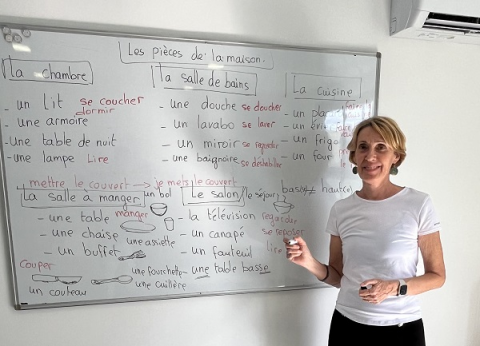 Les pièces de la maison.
La chambre
- un lit se coucher
dormir
- une armoire
- une table de nuit
- une lampe Lire
la salle de bains
- une douche se doucher
- un lavabo se laver
- un miroir se regarder
- une baignoire se déshabiller
La cuisine
- un
- un
- un frigo
- un four
mettre le couvert → je mets le couvert
La salle à manger
un bol
- une table manger
- une chaise
une assiette
- un buffet
Couper
un couteau
une fourchette
une cuillère
Le salon/le séjour
bas(se) ≠ haut(e)
- la télévision regarder
- un canapé se reposer
- un fauteuil lire
- une table basse